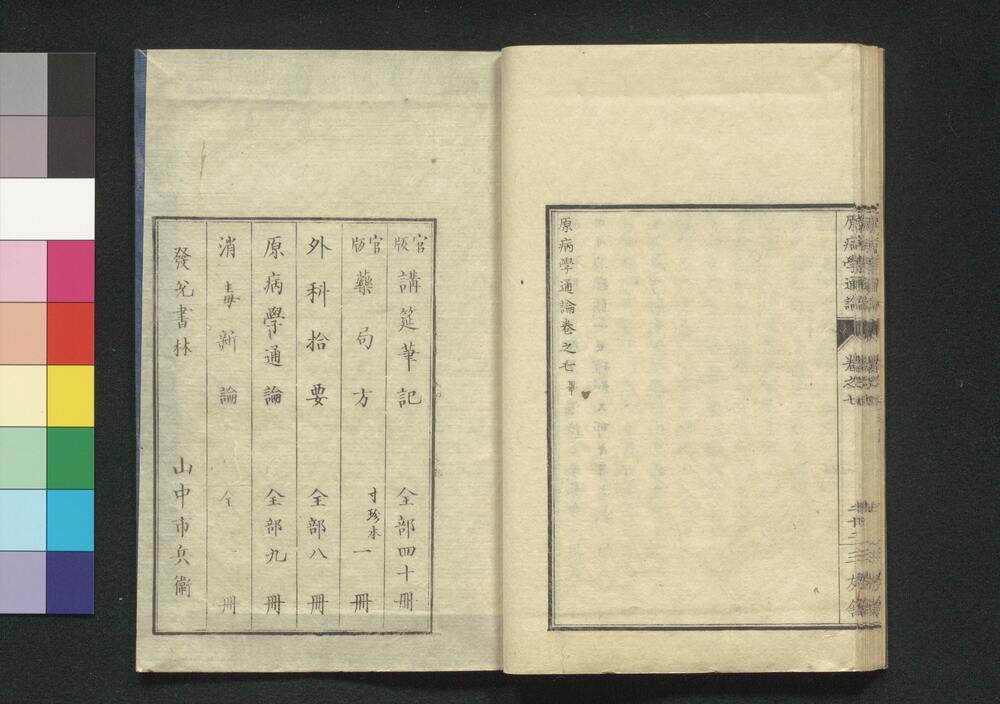 原病學通論
卷之七
原病學通論卷之七畢
官版 講筵筆記 全部四十冊
官版 藥局方 寸珍本 一冊
外科拾要 全部八冊
原病學通論 全部九冊
消毒新論 全一冊
發兌書林 山中市兵衞